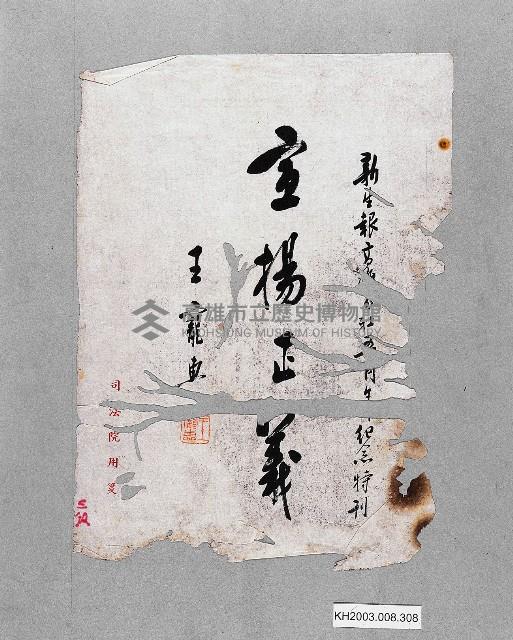 新生報高雄分社五一周年紀念特刊
宣揚正義
王寵惠
司法院用箋
高雄市立歷史博物館
KAOHSIUNG MUSEUM OF HISTORY
KH2003.008.308